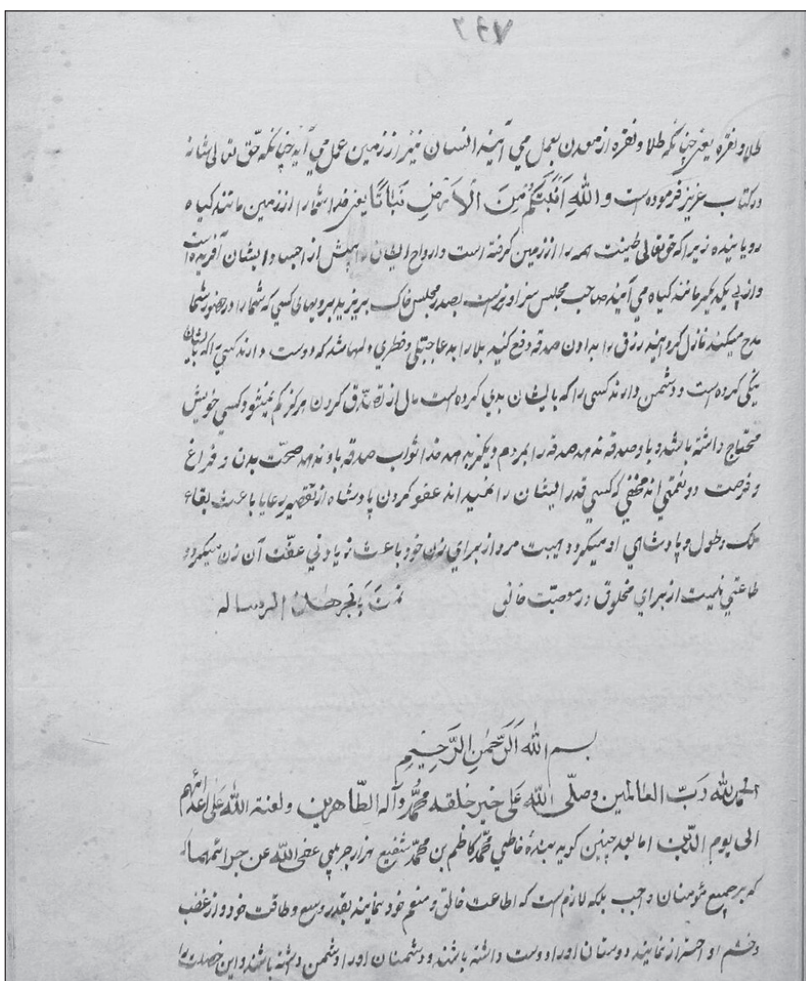 ۲۹۷
طلا و نقره یعنی چنانکه طلا و نقره از معدن بعمل می آیند انسان نیز از زمین عمل می آید چنانکه حق تعالی شانه
در کتاب عزیز فرموده است و الله اَنْبَتَکُمْ مِنَ الْاَرْضِ نَبَاتًا یعنی خدا شما را از زمین مانند کیاه
رویانیده زیرا که حق تعالی طینت همه را از زمین کرفته است و ارواح ایشان را پیش از اجساد ایشان آفریده است
و از پی یکدیکر مانند کیاه می آیند صاحب مجلس سزاوارتر است بصدر مجلس خاک بریزید برروهای کسی که شما را در حضور شما
مدح میکند نازل کردانید رزق را بدادن صدقه دفع کنید بلا را بدعا جبلی و فطری دلها شد که دوست دارند کسی را که بایشان
نیکی کرده است و دشمن دارند کسی را که با ایشان بدی کرده است مال از تصدق کردن هرکز کم نمیشود کسی خویش
محتاج داشته باشد و باو صدقه ندهد صدقه را بمردم دیکر بدهد خدا ثواب صدقه باو ندهد صحت بدن و فراغ
و فرصت دو نعمتی اند مخفی که کسی قدر ایشان را نفهمید اند عفو کردن پادشاه از تقصیر رعایا باعث بقاء
ملک و طول و پادشاهی او میکردد هیبت مرد از برای زن خود باعث زیادتی عفت آن زن میکردد
طاعتی نیست از برای مخلوق در معصیت خالق هذه الرساله
بسم الله الرَّحْمٰنِ الرَّحِیْمِ
الحمد لله رَبّ العالمین وصلّی الله عَلی خیر خلقه محمّد وآله الطّاهرین ولعنة الله علی اعدائهم
الی یوم الدّین اما بعد چنین کوید بندهٔ خاطی محمّد کاظم بن محمّد شفیع هزارجریبی عفی الله عن جرائمهما که
که بر جمیع مؤمنان واجب بلکه لازم است که اطاعت خالق و منعم خود نمایند بقدر وسع و طاقت خود و از غضب
و خشم او احتراز نمایند دوستان او را دوست داشته باشند و دشمنان او را دشمن داشته باشند و این خصلت را